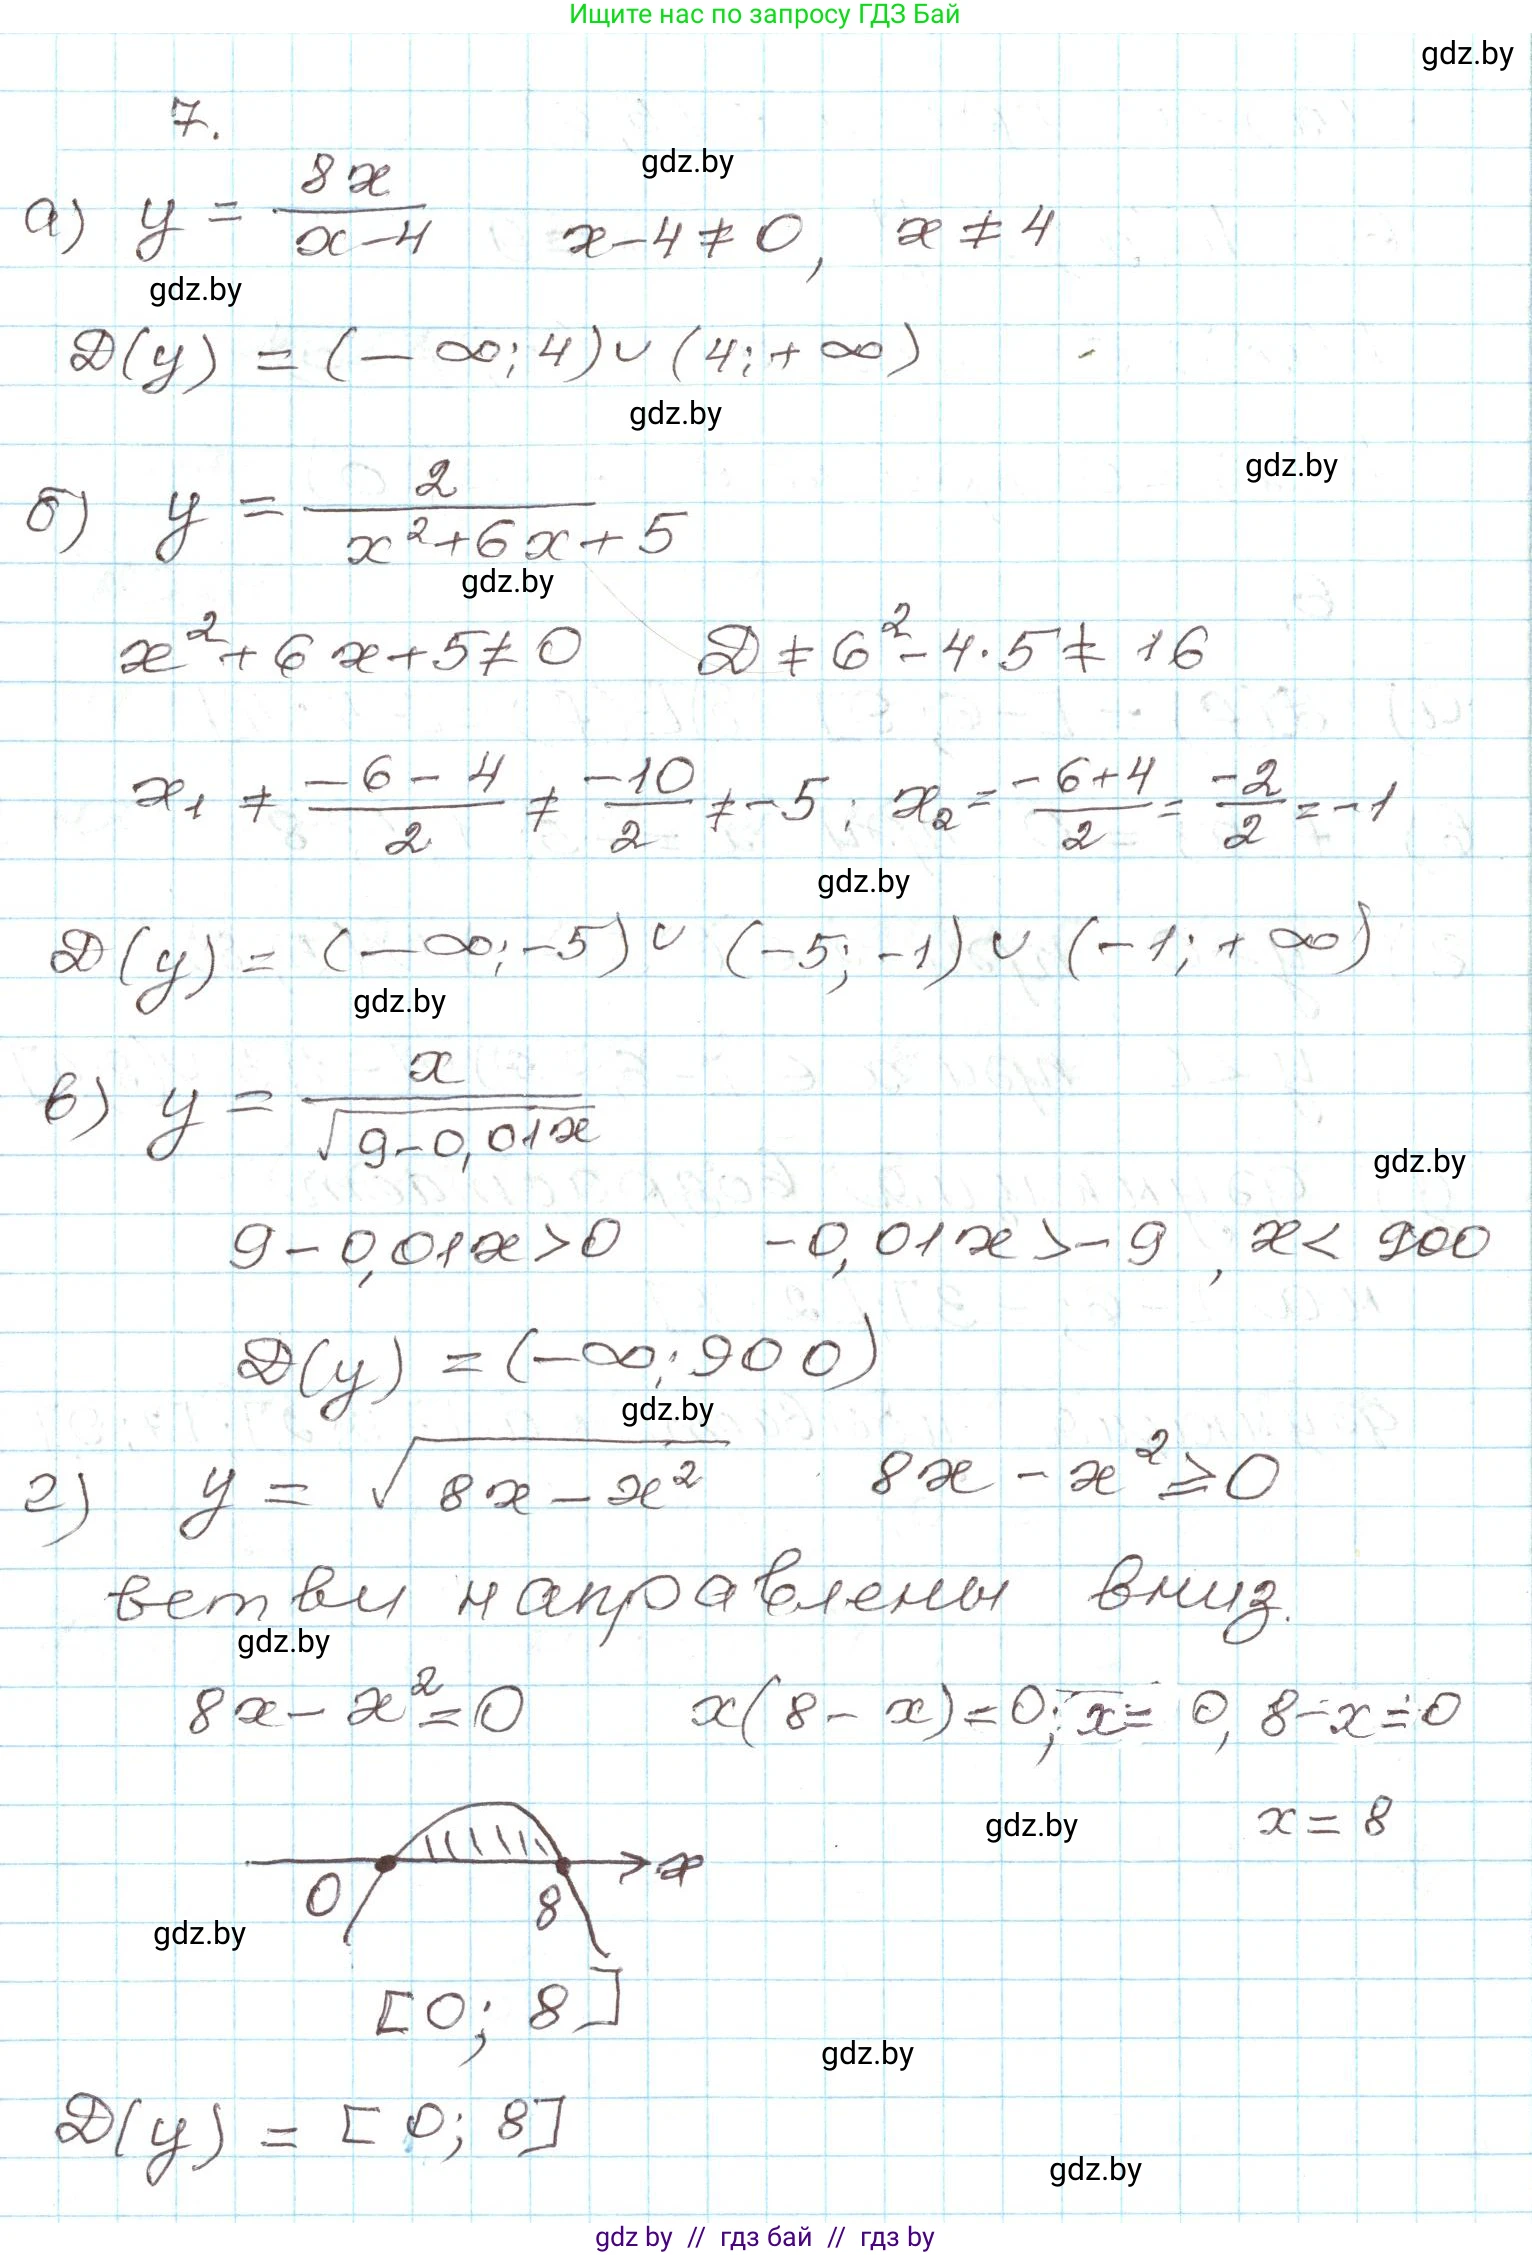 Ищите нас по запросу ГДЗ Бай
gdz.by
7.
gdz.by
а) y = 8x / (x-4)   x-4≠0, x≠4
gdz.by
D(y) = (-∞; 4) ∪ (4; +∞)
gdz.by
gdz.by
б) y = 2 / (x²+6x+5)
gdz.by
x²+6x+5≠0   D≠6²-4·5≠16
x₁ ≠ (-6-4)/2 ≠ -10/2 ≠ -5; x₂ = (-6+4)/2 = -2/2 = -1
gdz.by
D(y) = (-∞; -5) ∪ (-5; -1) ∪ (-1; +∞)
gdz.by
в) y = x / √(9-0,01x)
gdz.by
9-0,01x>0   -0,01x>-9, x<900
D(y) = (-∞; 900)
gdz.by
г) y = √(8x-x²)   8x-x²≥0
ветви направлены вниз.
gdz.by
8x-x²=0   x(8-x)=0; x=0, 8-x=0
gdz.by   x=8
x
0   8
gdz.by
[0; 8]
gdz.by
D(y) = [0; 8]
gdz.by
gdz by // гдз бай // гдз by